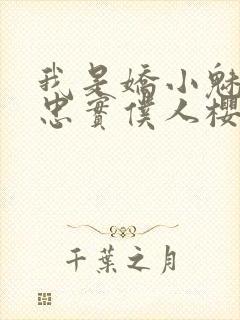 我是嬌小魅
忠實僕人櫻
千葉之月